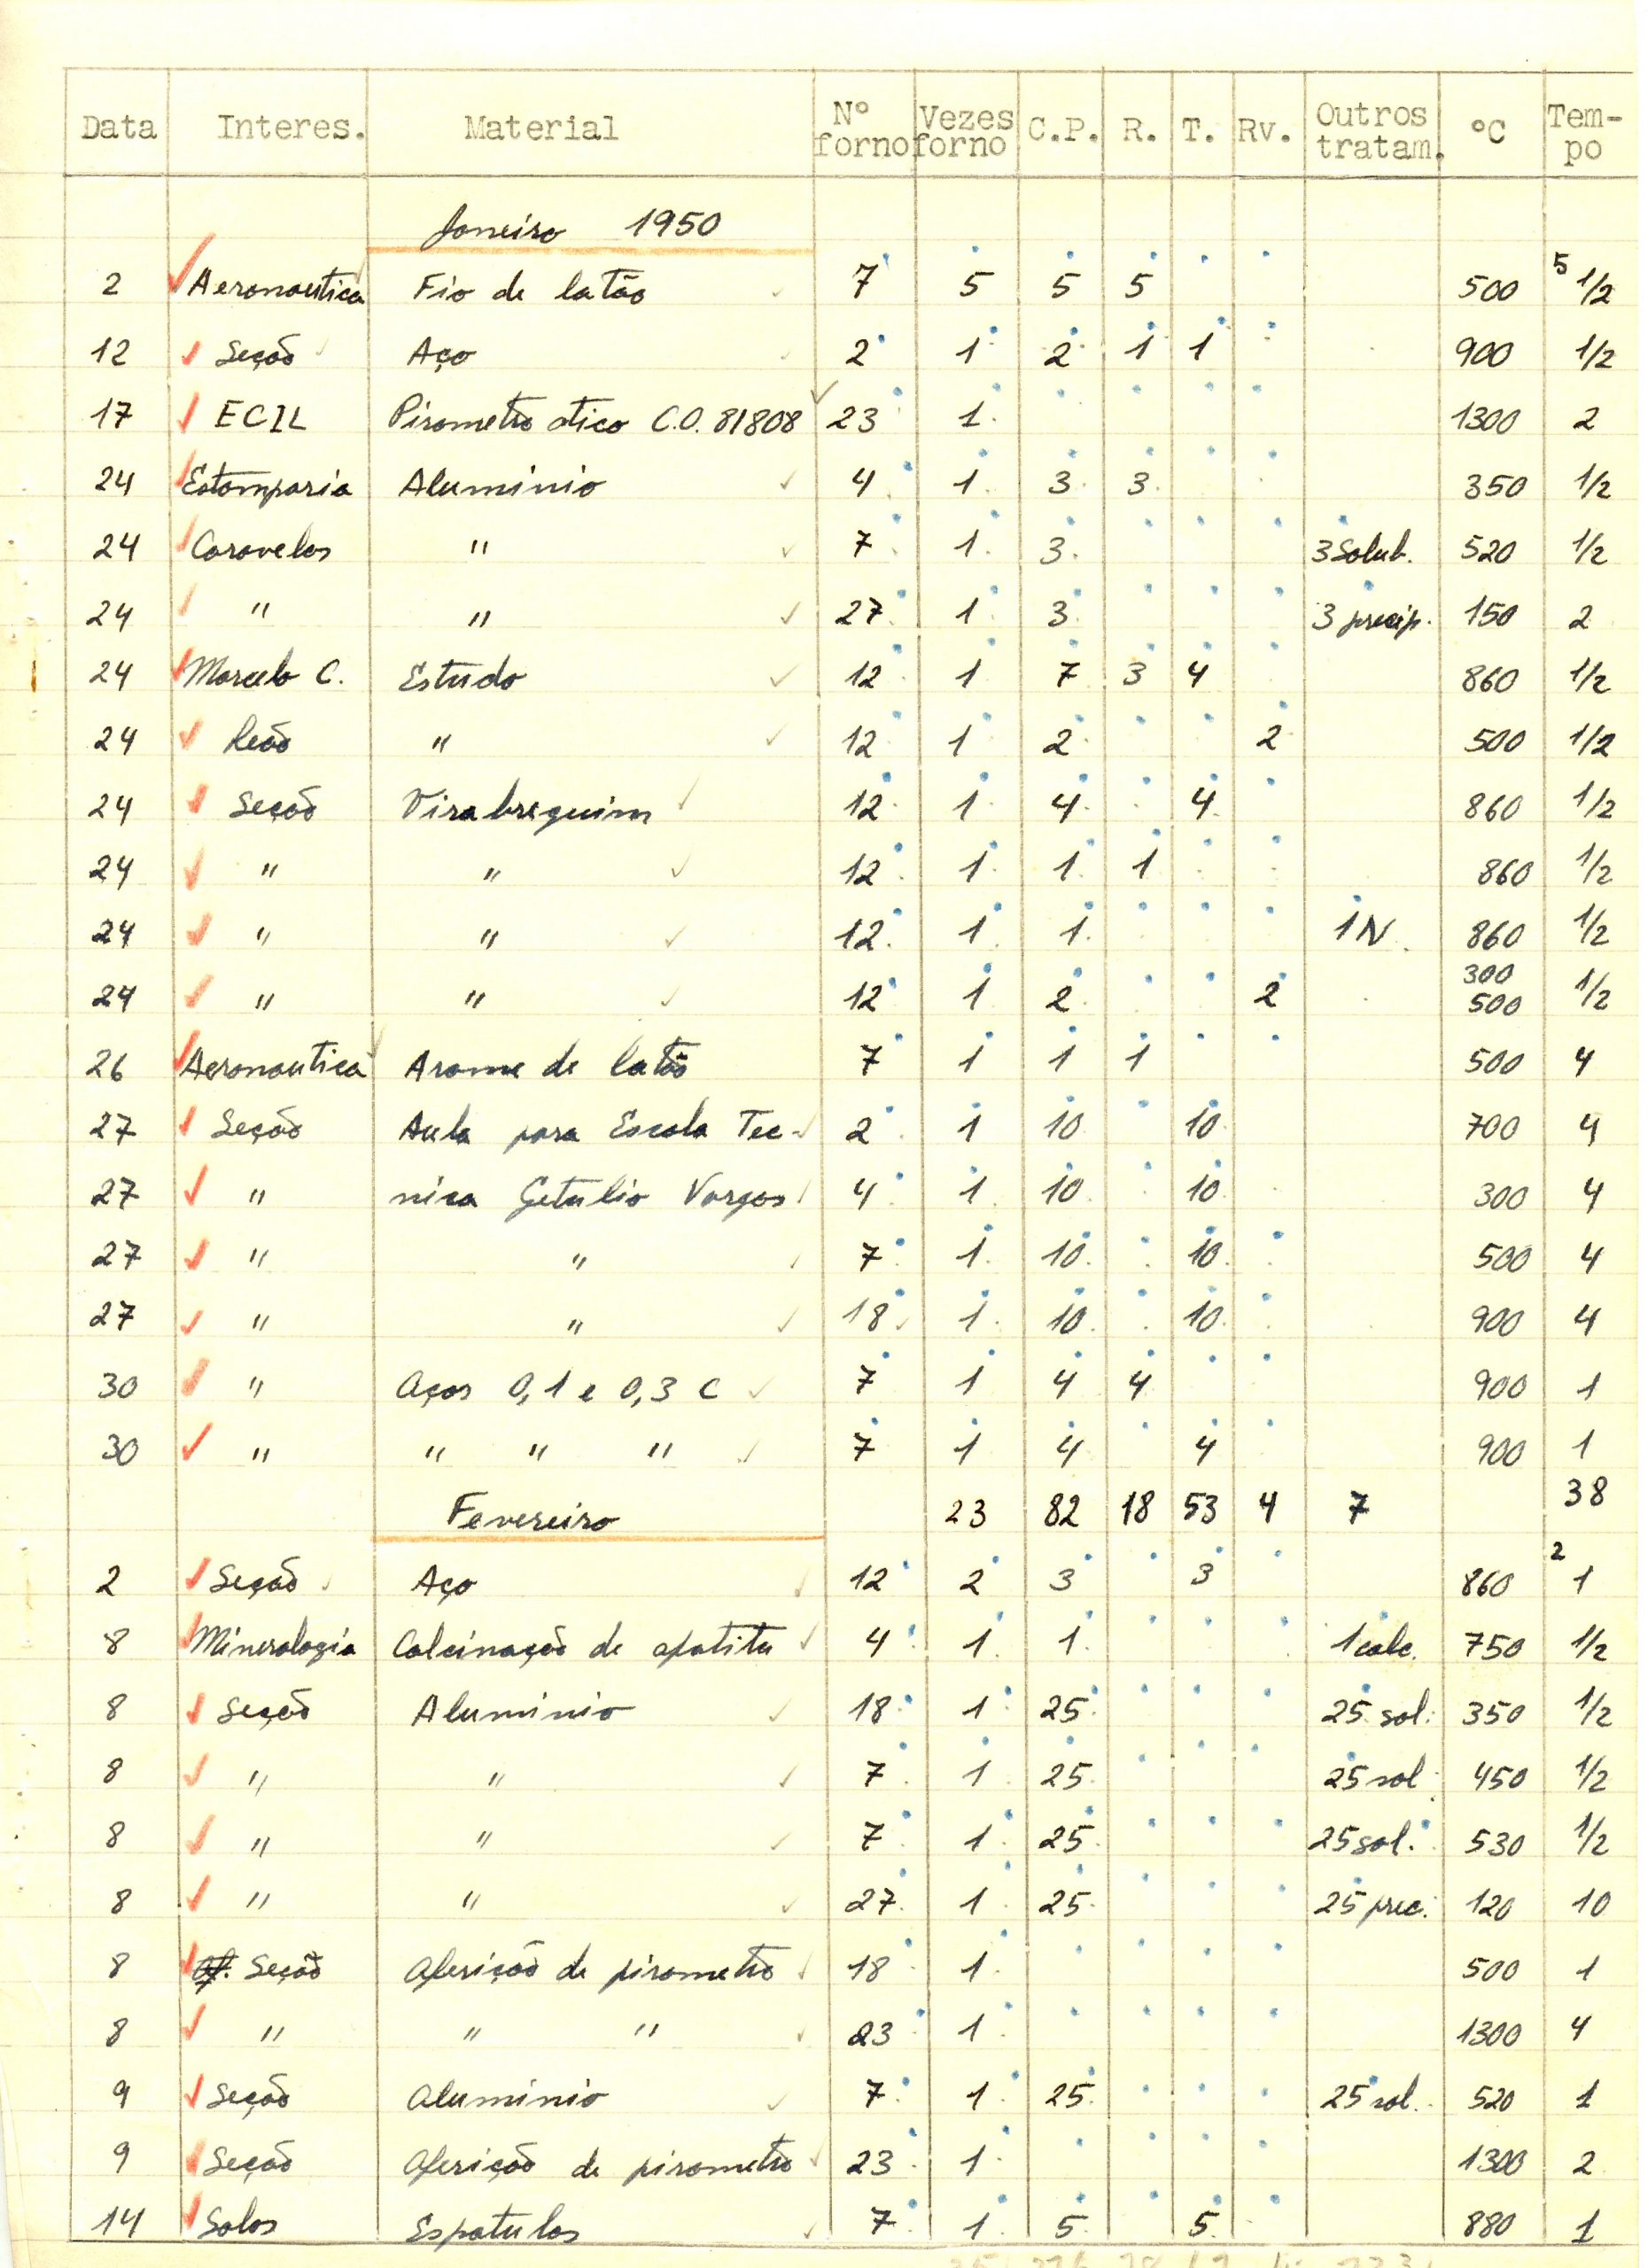 Data Interes. Material Nº forno Vezes forno C.P. R. T. Rv. Outros tratam. ºC Tem-po
Janeiro 1950
2 Aeronautica Fio de latão 7 5 5 5 500 5 1/2
12 Seção Aço 2 1 2 1 1 900 1/2
17 ECIL Pirometro otico C.O. 81808 23 1 1300 2
24 Estamparia Aluminio 4 1 3 3 350 1/2
24 Caravelas " 7 1 3 3 Solub. 520 1/2
24 " " 27 1 3 3 precip. 150 2
24 Marcelo C. Estudo 12 1 7 3 4 860 1/2
24 " 12 1 2 2 500 1/2
24 Seção Virabrequim 12 1 4 4 860 1/2
24 " " 12 1 1 1 860 1/2
24 " " 12 1 1 1 N. 860 1/2
24 " " 12 1 2 2 300 500 1/2
26 Aeronautica Arame de latão 7 1 1 1 500 4
27 Seção Aula para Escola Tec- 2 1 10 10 700 4
27 " nica Getulio Vargas 4 1 10 10 300 4
27 " " 7 1 10 10 500 4
27 " " 18 1 10 10 900 4
30 " Aços 0,1 e 0,3 C 7 1 4 4 900 1
30 " " " " 7 1 4 4 900 1
Fevereiro 23 82 18 53 4 7 38
2 Seção Aço 12 2 3 3 860 2 1
8 Mineralogia Calcinação de apatita 4 1 1 1 calc. 750 1/2
8 Seção Aluminio 18 1 25 25 sol. 350 1/2
8 " " 7 1 25 25 sol 450 1/2
8 " " 7 1 25 25 sol. 530 1/2
8 " " 27 1 25 25 prec. 120 10
8 Seção Aferição de pirometro 18 1 500 1
8 " " " 23 1 1300 4
9 Seção Aluminio 7 1 25 25 sol. 520 1
9 Seção Aferição de pirometro 23 1 1300 2
14 Solos Espatulas 7 1 5 5 880 1